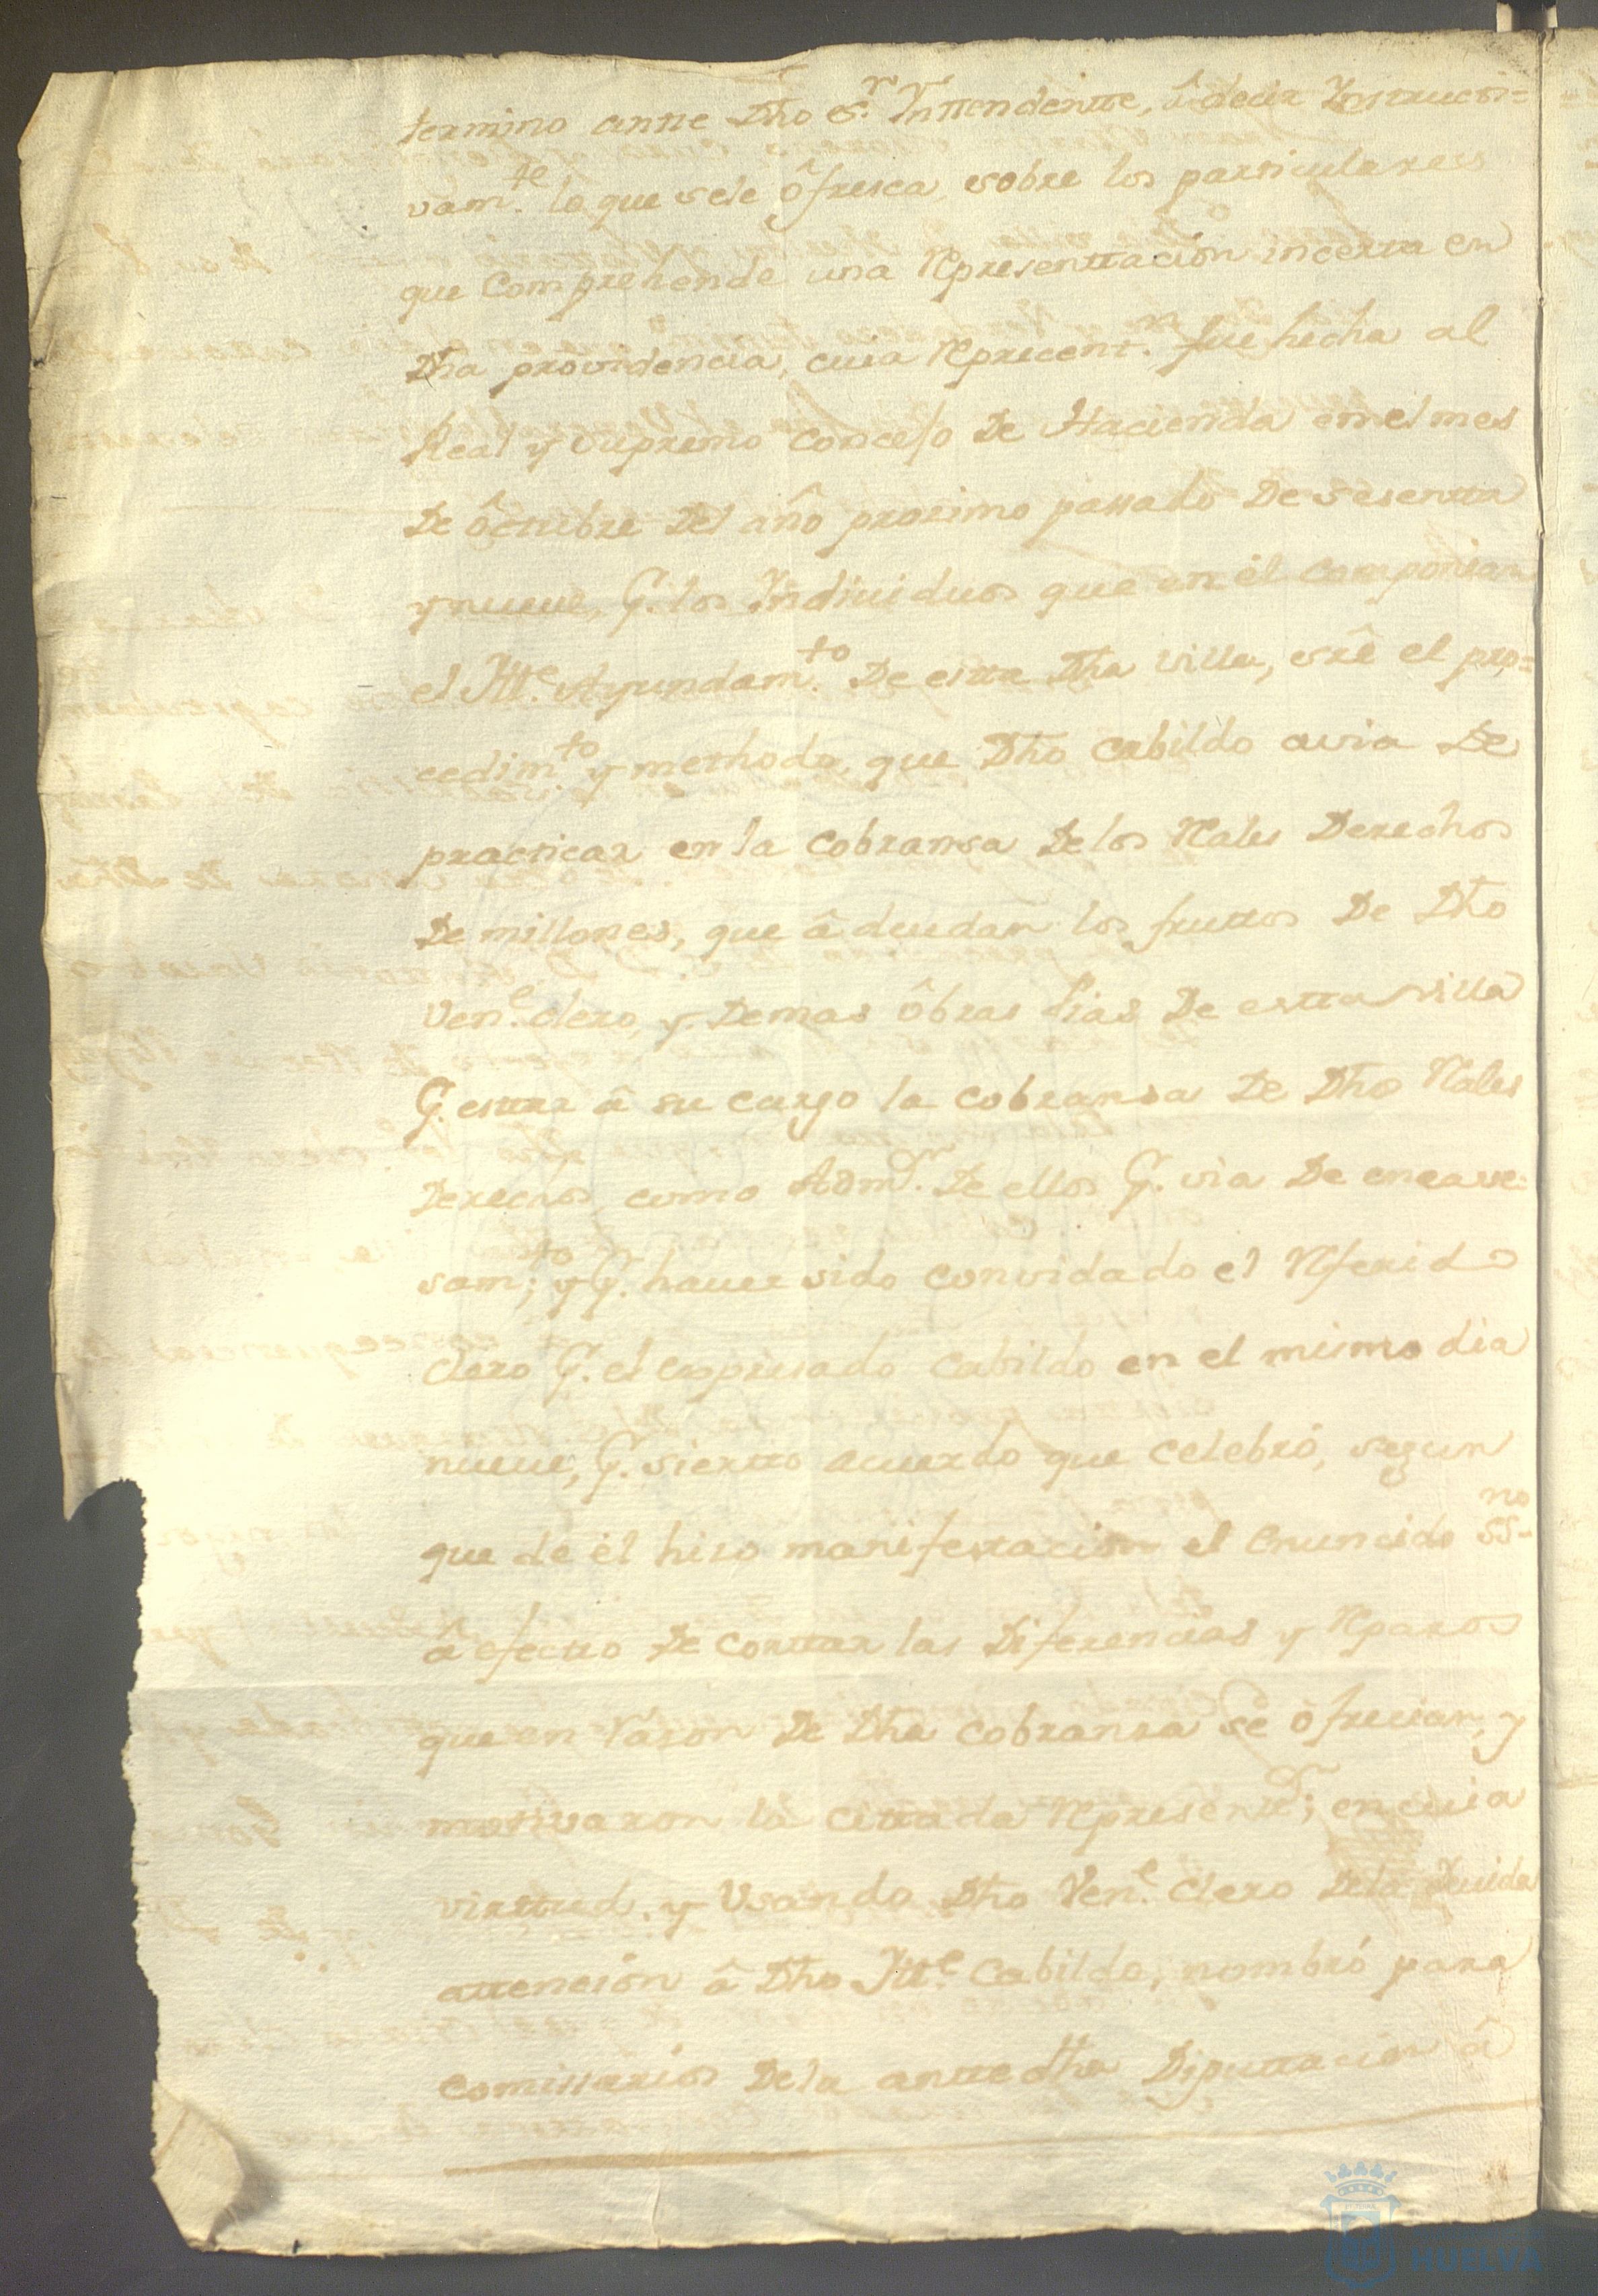 termino antte Dho S.r Inttendentte, â decir Instructi=
vam.te lo que sele ôfresca, sobre los particulares
que Comprehende una Representtacion incerta en
Dha providencia, cuia Reprecent.n fue hecha al
Real y supremo concejo De Hacienda en el mes
De ôctubre Del âño proximo passado De sesentta
y nueve, P. los Individuos que en él componian
el Ill.e Ayundam.to De estta Dha villa, sre el pro=
cedim.to y methodo, que Dho Cabildo avia De
practicar en la Cobransa De los Rales Derechos
De millones, que âdeudan los fruttos De Dho
Ven.e Clero, y Demas ôbras pias De estta villa
P. esttar â su cargo la cobransa De Dho Rales
Derechos como Adm.r De ellos P. via De encave=
sam.to; y P. haver sido convidado el Referido
Clero P. el expresado Cabildo en el mismo dia
nueve, P. sierto acuerdo que celebró, segun
que de él hiso manifestacion el Enuncido ss.no
â efectto De corttar las Diferencias y Reparos
que en Razon De Dha cobransa se ofrecian, y
motivaron la cittada Represent.n; en cuia
virttud, y Usando Dho Ven.e Clero Dela Devida
attencion â Dho Ill.e Cabildo, nombró para
comissarios Dela anttedha Diputtacion â
HUELVA